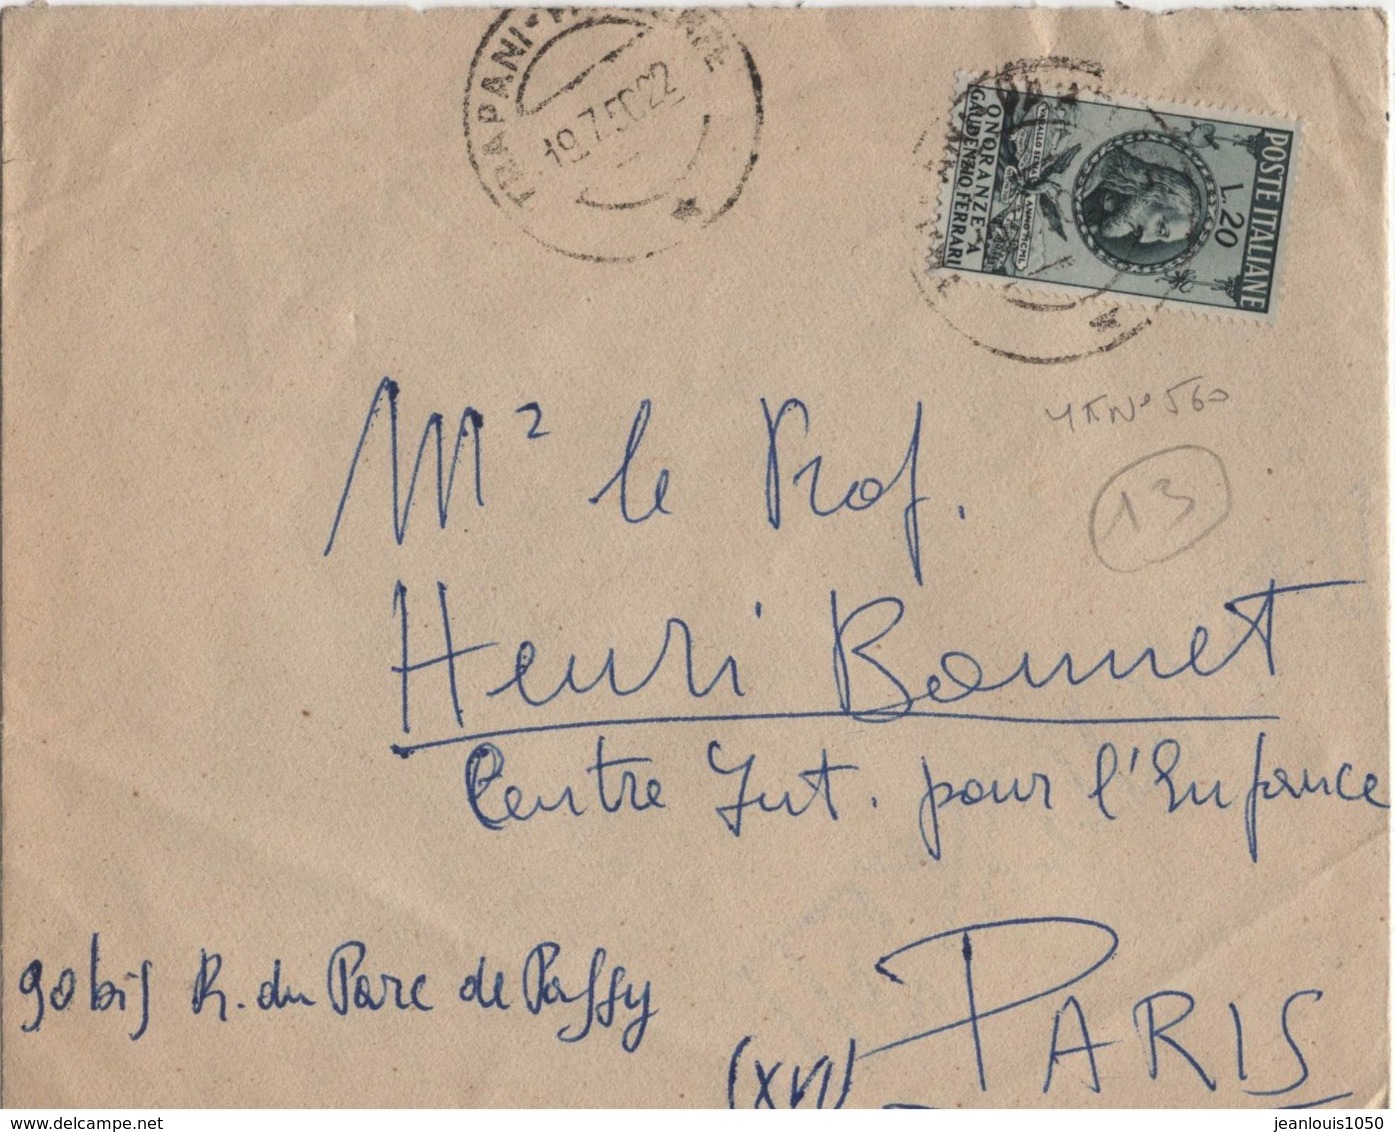 TRAPANI
19.7.50.22
POSTE ITALIANE
L. 20
ONORANZE A
GAUDENZIO FERRARI
VARALLO SESIA
ANNO MCML
YT N° 560
13
Mr le Prof.
Henri Bonnet
Centre Int. pour l'Enfance
90bis R. du Parc de Passy
(XVI) PARIS
delcampe.net
jeanlouis1050